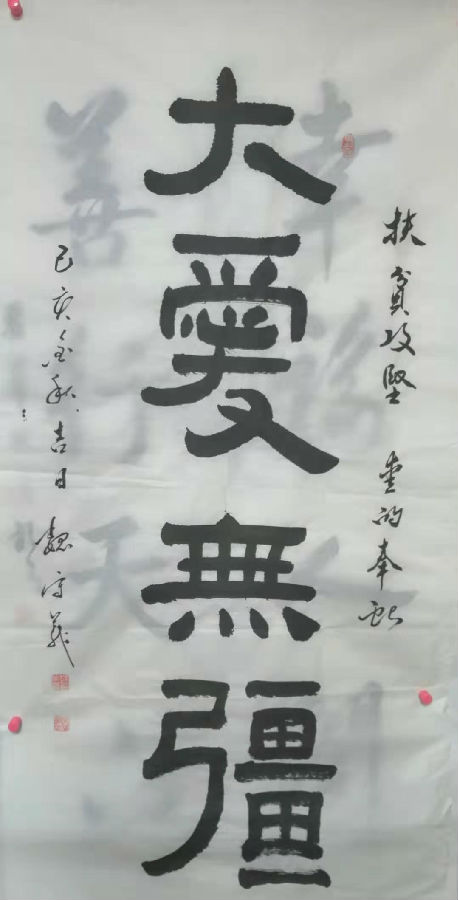 扶貧攻堅 愛的奉献
大愛無疆
己亥金秋吉日 魏守義